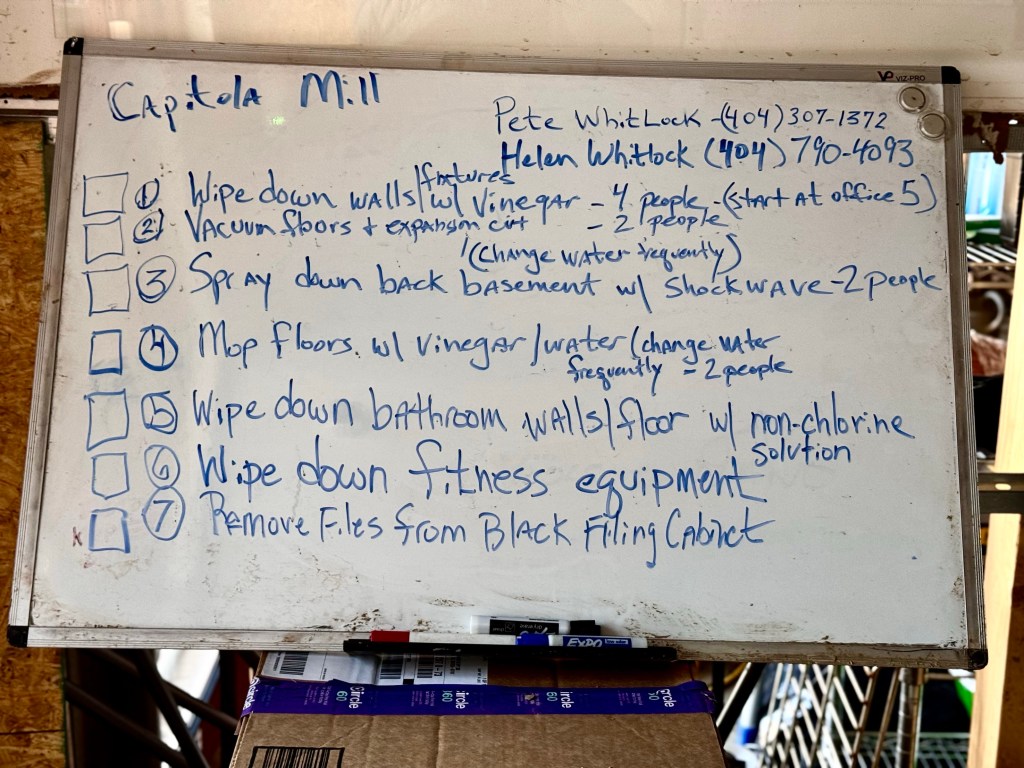 VP VIZ-PRO
Capitola Mill
Pete Whitlock - (404) 307-1372
Helen Whitlock (404) 790-4093
① Wipe down walls/fixtures w/ vinegar - 4 people - (start at office 5)
② Vacuum floors + expansion cut - 2 people
(Change water frequently)
③ Spray down back basement w/ Shockwave - 2 people
④ Mop floors w/ vinegar/water (change water
frequently - 2 people
⑤ Wipe down bathroom walls/floor w/ non-chlorine
solution
⑥ Wipe down fitness equipment
⑦ Remove Files from Black Filing Cabinet
EXPO
circle
60
circle
60
circle
60
circle